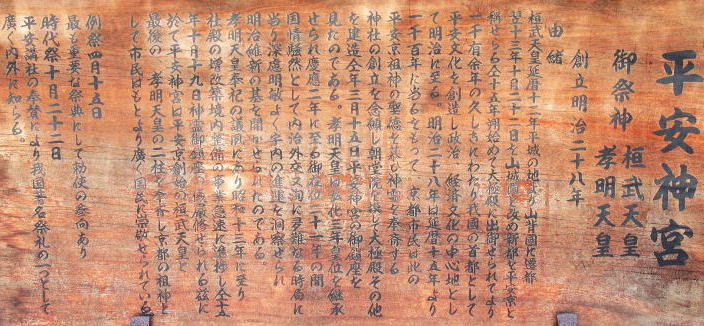 平安神宮
御祭神 桓武天皇
孝明天皇
創立明治二十八年
由緒
桓武天皇延暦十二年平城の地より山背国に遷都
翌十三年十月二十二日を山城国と改め新都を平安京と
称せらる全十五年開始めて大極殿に出御せられてより
一千有余年の久しきにわたり我国の首都として
平安文化を創造し政治 経済文化の中心地とし
て明治に至る。明治二十八年は延暦十五年より
一千百年に当るをもって 京都市民は此の
平安京祖神の聖徳を敬し神霊を奉斎する
神社の創立を念願し朝堂院を模して大極殿その他
を建造仝年三月十五日平安神宮の御鎮座を
見たのである。孝明天皇は弘化三年皇位を継承
せられ慶應二年に至る御在位二十一年の間
国情騒然として内治外交又洵に多難なる時局に
当り深慮明敏よく宇内の進運を洞察せられ
明治維新の基を開かせられたのである。
孝明天皇奉祀の議夙に有り昭和十三年に至り
社殿の増改築境内整備の事業急速に進捗し仝十五
年十月十九日神霊御鎮座の儀厳修せられる茲に
於て平安神宮は平安京創始の桓武天皇と
最後の 孝明天皇の二柱を奉斎し京都の祖神と
して市民はもとより廣く国民に崇敬せられている
例祭四月十五日
最も重要な祭典にして勅使の参向あり
時代祭十月二十二日
平安講社の奉賛により我国著名祭礼の一つとして
廣く内外に知らる。